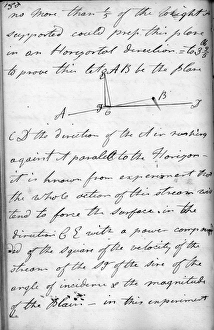 no more than 1/5 of the Weight
supported could press this plane
in an Horizontal direction =
to prove this let A B be the plane
E
B
A
C
D
C D the direction of the Air rushing
against A parallel to the Horizon
it is known from experiment that
the whole action of this stream will
tend to force the surface in the
direction C E with a power compoun
ded of the square of the velocity of the
stream of the Sqr of the sine of the
angle of incidence & the magnitude
of the Plain — in this experiment